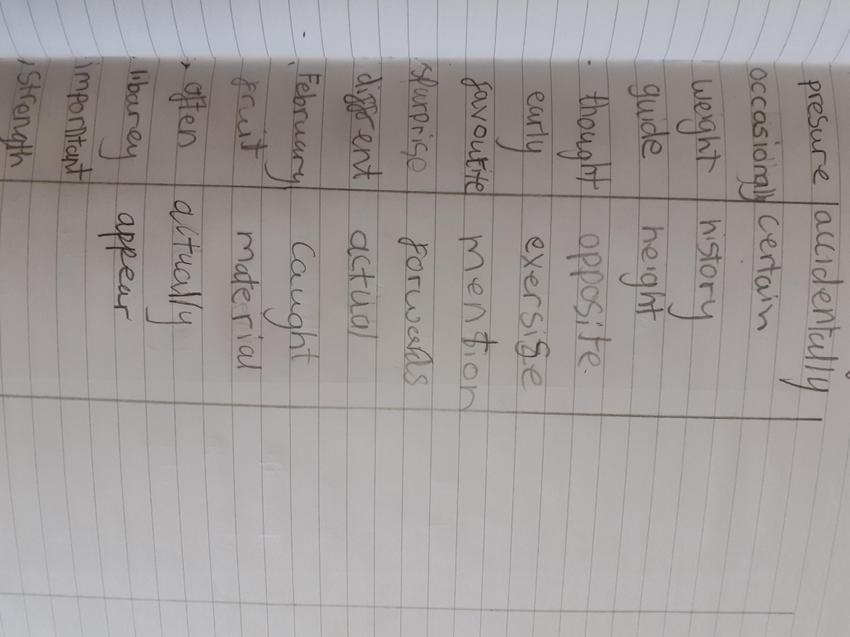 presure accidentally
occasionally certain
weight history
guide height
thought opposite.
early exersise
favourite mention
surprise forwards
different actual
February caught
fruit material
often actually
libarey appear
important
strength